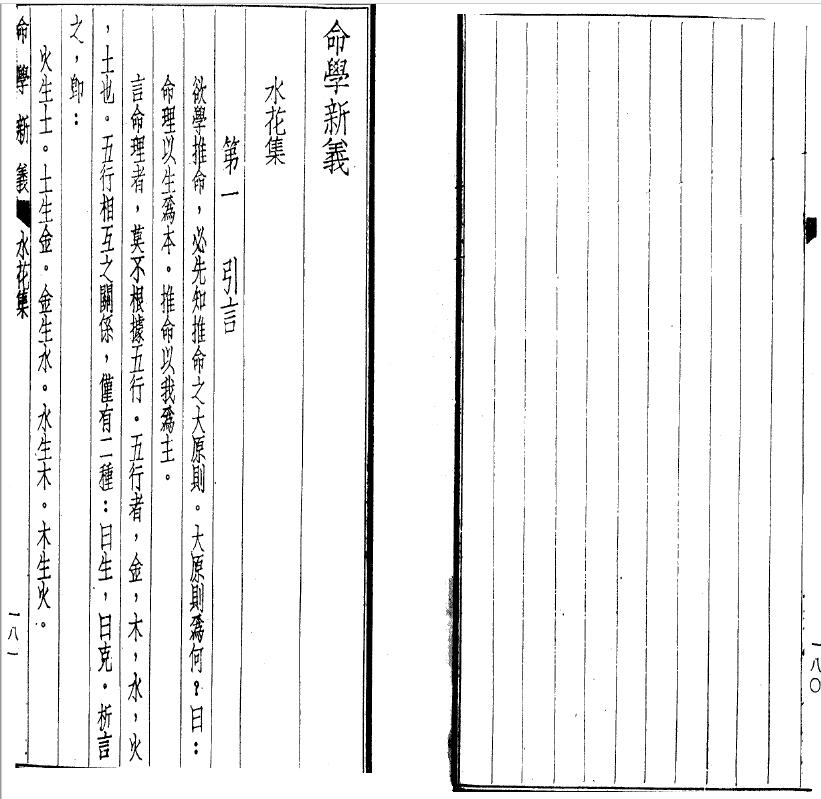 一八〇
命學新義
水花集
第一 引言
欲學推命，必先知推命之大原則。大原則爲何？曰：
命理以生爲本。推命以我爲主。
言命理者，莫不根據五行。五行者，金，木，水，火
，土也。五行相互之關係，僅有二種：曰生，曰克。析言
之，卽：
火生土。土生金。金生水。水生木。木生火。
命學新義 水花集
一八一